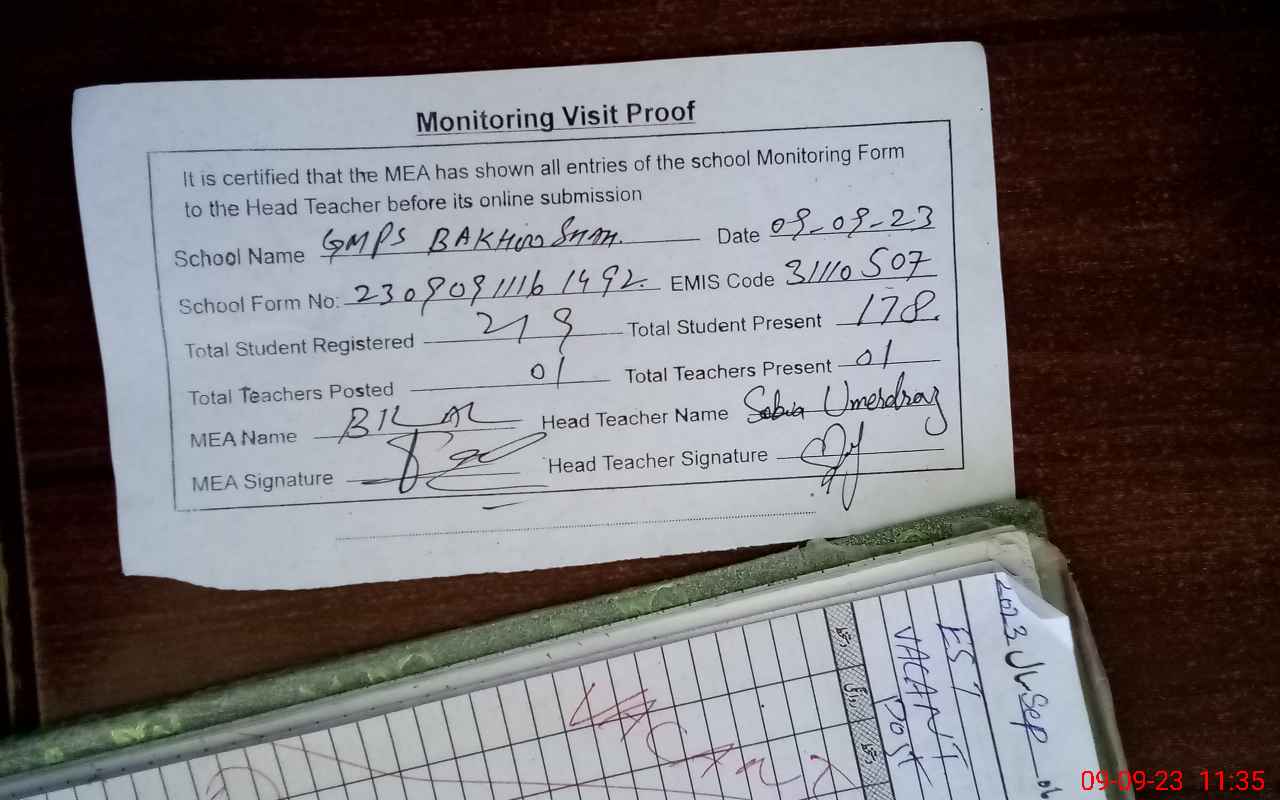 Monitoring Visit Proof
It is certified that the MEA has shown all entries of the school Monitoring Form
to the Head Teacher before its online submission
School Name GMPS BAKHOO SHAH. Date 09-09-23
School Form No: 2309091116 1492. EMIS Code 31110507
Total Student Registered 219 Total Student Present 178.
Total Teachers Posted 01 Total Teachers Present 01
MEA Name BILAL Head Teacher Name Sobia Umerdraz
MEA Signature Head Teacher Signature
2023 Sep
EST
VACANT
Post
VACANT
09-09-23 11:35